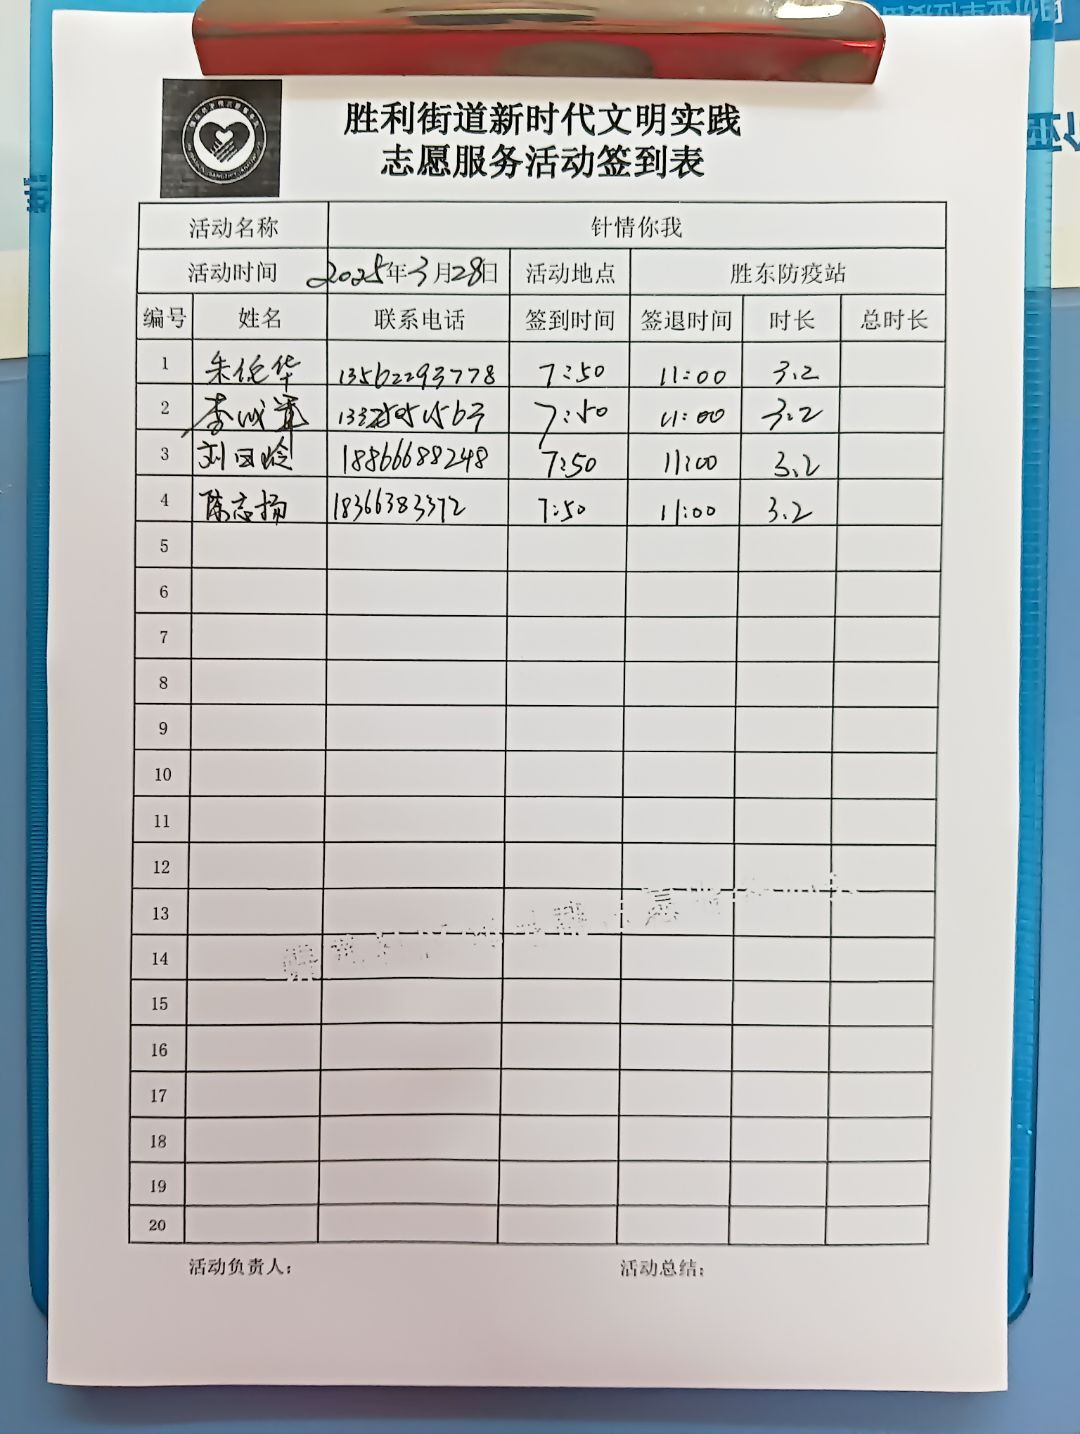 胜利街道新时代文明实践
志愿服务活动签到表
活动名称 针情你我
活动时间 2025年3月28日 活动地点 胜东防疫站
编号 姓名 联系电话 签到时间 签退时间 时长 总时长
1 朱伦华 13562293778 7:50 11:00 3.2
2 李 7:50 11:00 3.2
3 刘 18866688248 7:50 11:00 3.2
4 陈志扬 18366383372 7:50 11:00 3.2
5
6
7
8
9
10
11
12
13
14
15
16
17
18
19
20
活动负责人: 活动总结: